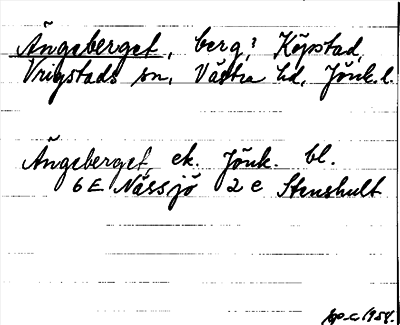 Ängaberget, berg; Köpstad,
Vrigstads sn, Västra hd, Jönk. l.
Ängaberget, ek. Jönk. bl.
6E Nässjö 2e Stenshult
1954.